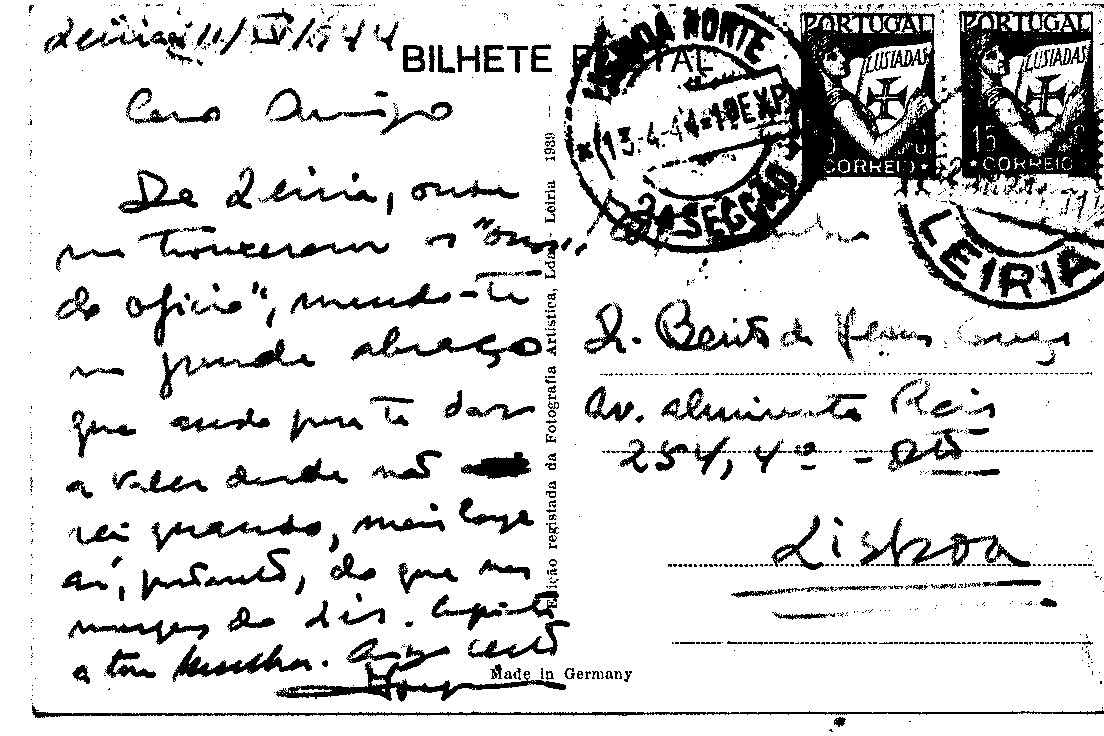 Leiria 11/IV/1944
BILHETE POSTAL
Caro Amigo
De Leiria, onde
me trouxeram os "ossos
do ofício", mando-te
um grande abraço
que ando para te dar
a valer desde não
sei quando, mais longe
aí, portanto, do que nas
margens do Lis. Cumprimenta
a tua Mulher. Amigo certo
Edição registada da Fotografia Artistica, Lda - Leiria 1939
Made in Germany
LISBOA NORTE
13·4·44·19EXP
2ª SECÇÃO
PORTUGAL
LUSIADAS
CORREIO
PORTUGAL
LUSIADAS
15
CORREIO
LEIRIA
Dr. Bento de Jesus Caraça
Av. Almirante Reis
254, 4º - Dtº
Lisboa